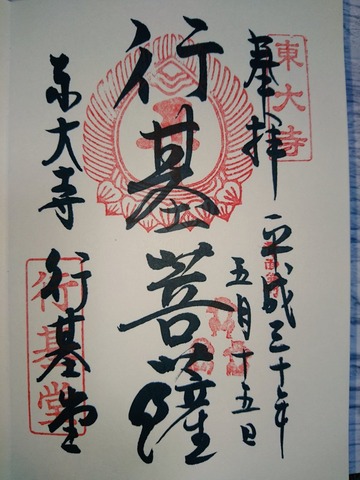 東大寺
奉拝
平成三十年
五月十五日
行基菩薩
東大寺
行基堂
行基堂